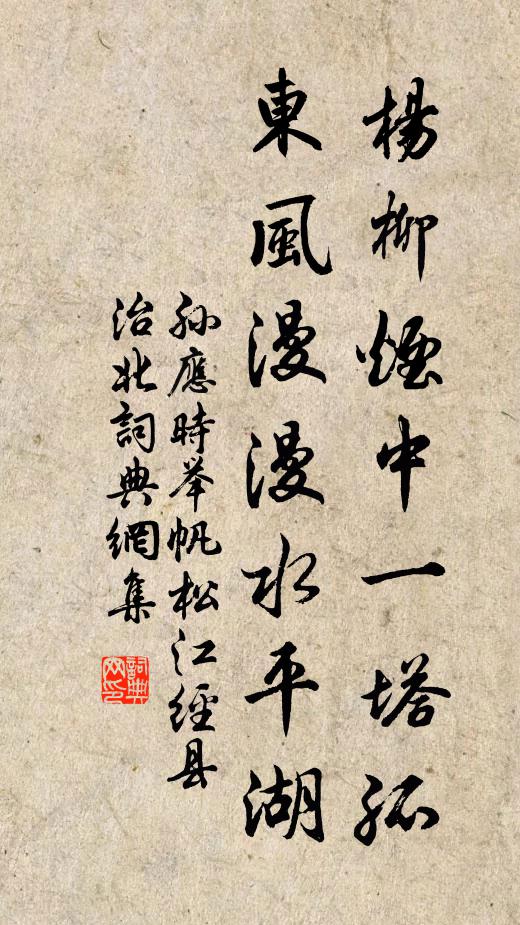 楊柳煙中一塔孤
東風漫漫水平湖
孙應時举帆松江經县
治北詞典網集
詞典网印